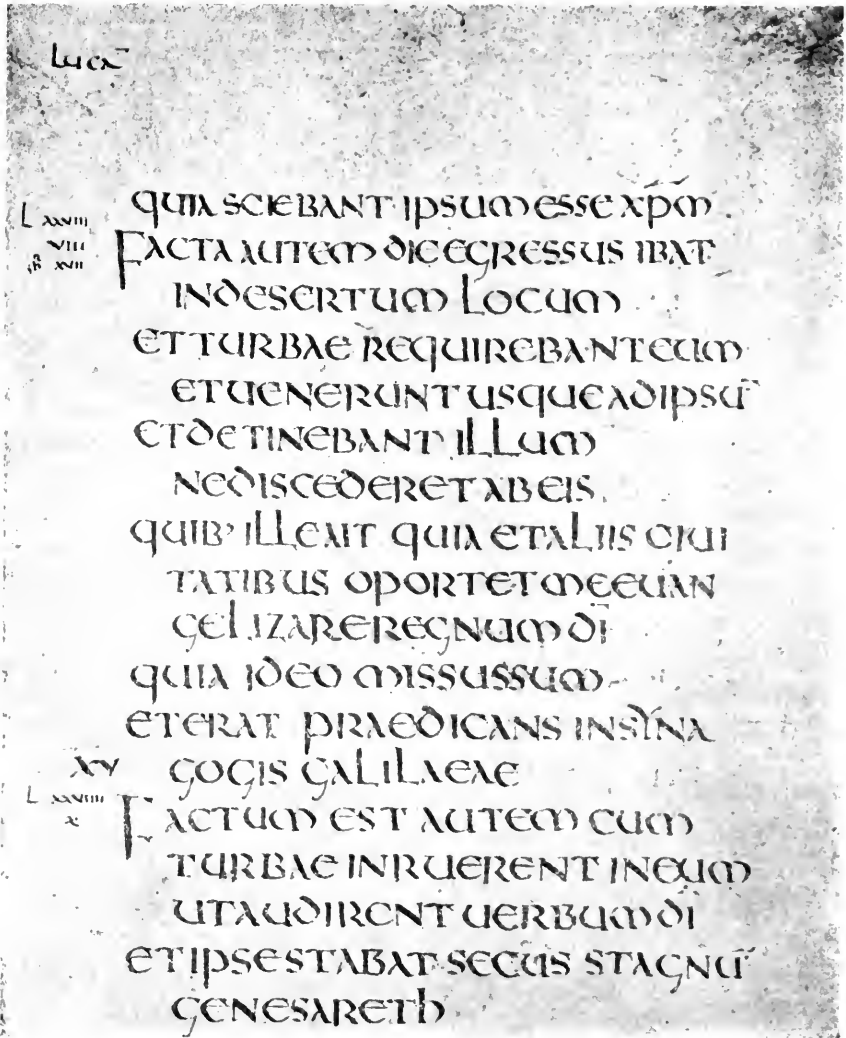 Luca
QUIA SCIEBANT IPSUM ESSE XP̄M̄
L XXVIII
FACTA AUTEM DIE EGRESSUS IBAT
VIII
XVII
IN DESERTUM LOCUM
ET TURBAE REQUIREBANT EUM
ET UENERUNT USQUE AD IPSŪ
ET DETINEBANT ILLUM
NE DISCEDERET AB EIS
QUIB' ILLE AIT QUIA ET ALIIS CIUI
TATIBUS OPORTET ME EUAN
GELIZARE REGNUM DĪ
QUIA IDEO MISSUS SUM
ET ERAT PRAEDICANS IN SYNA
XV
GOGIS GALILAEAE
L XXVIIII
X
FACTUM EST AUTEM CUM
TURBAE INRUERENT IN EUM
UT AUDIRENT UERBUM DĪ
ET IPSE STABAT SECUS STAGNŪ
GENESARETH